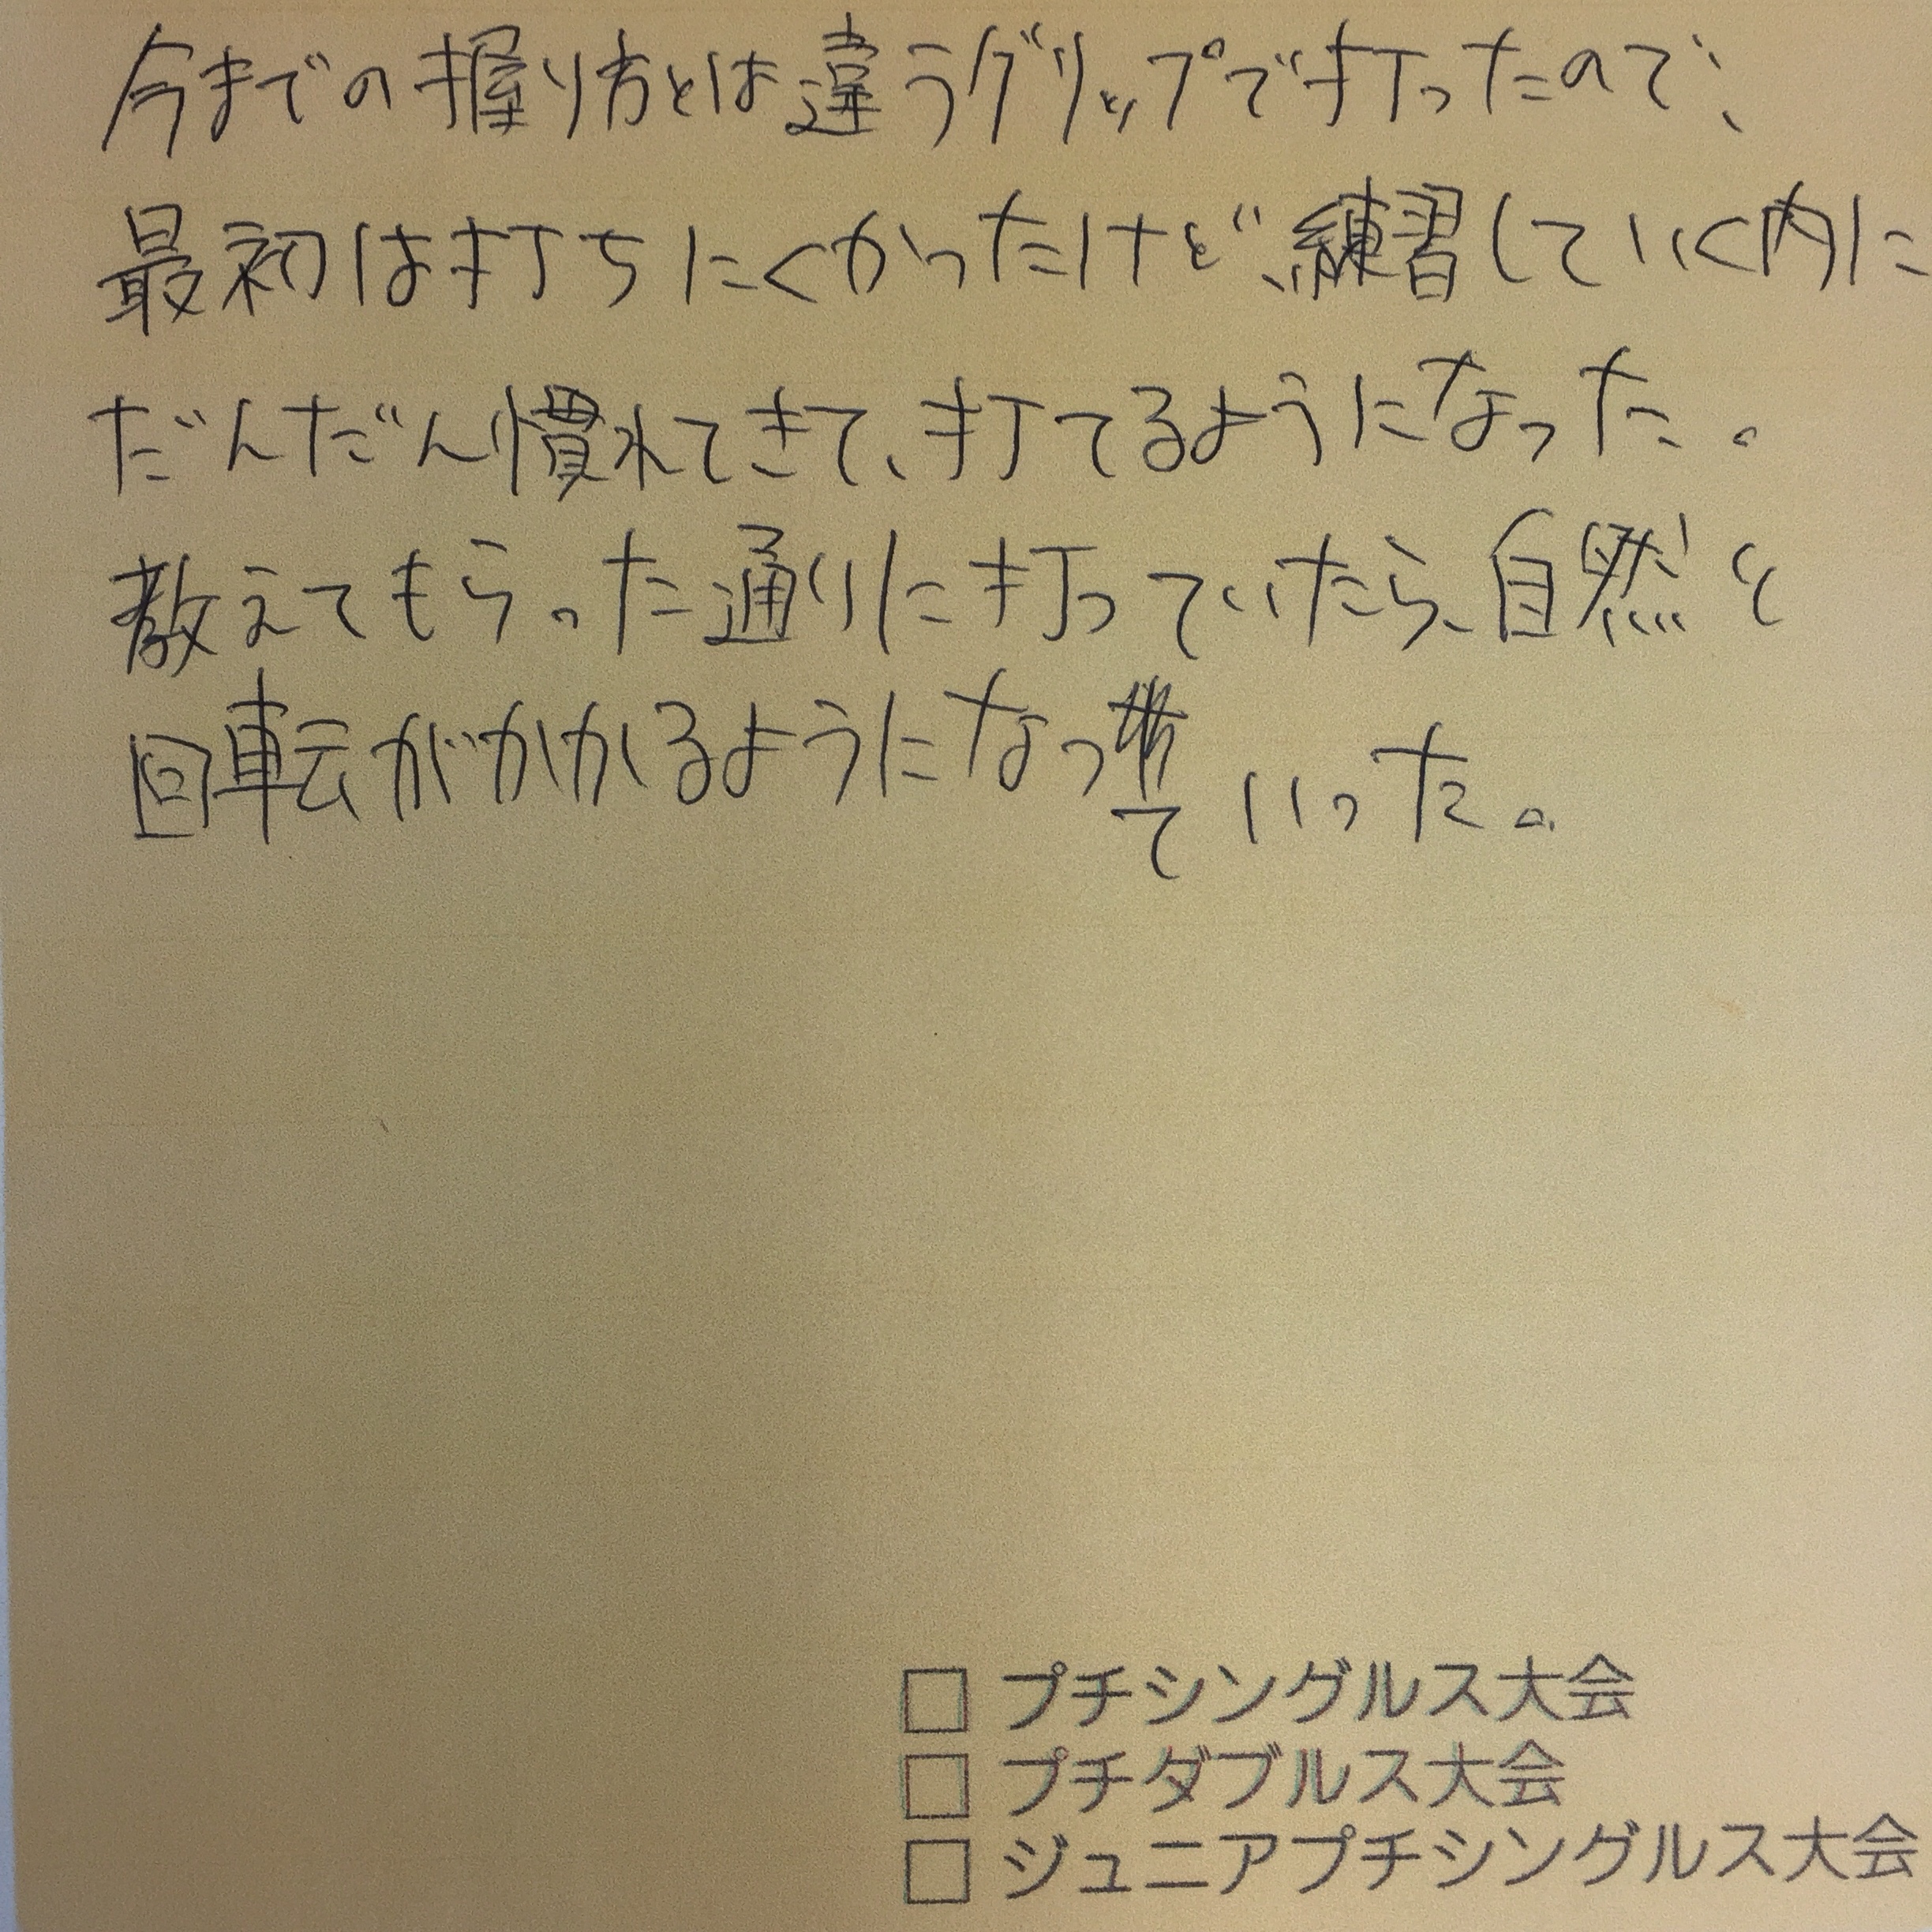 今までの握り方とは違うグリップで打ったので、
最初は打ちにくかったけど、練習していく内に
だんだん慣れてきて、打てるようになった。
教えてもらった通りに打っていたら、自然と
回転がかかるようになっていった。
□ プチシングルス大会
□ プチダブルス大会
□ ジュニアプチシングルス大会